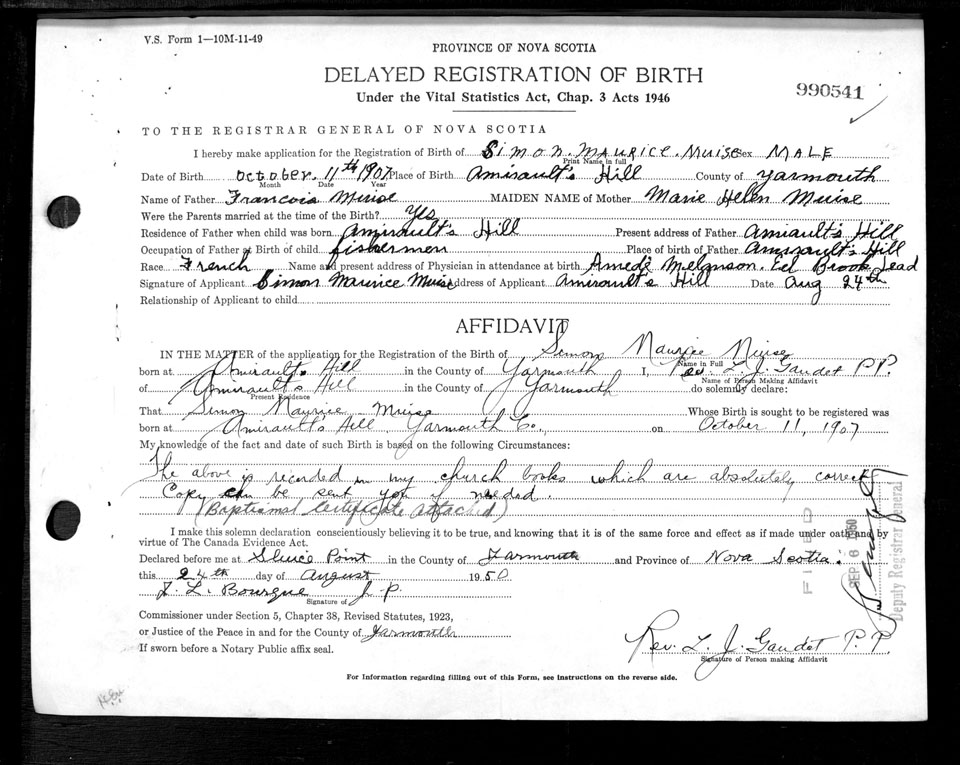 V.S. Form 1—10M-11-49
PROVINCE OF NOVA SCOTIA
DELAYED REGISTRATION OF BIRTH
Under the Vital Statistics Act, Chap. 3 Acts 1946
990541
TO THE REGISTRAR GENERAL OF NOVA SCOTIA
I hereby make application for the Registration of Birth of Simon. Maurice. Muise Sex MALE
Print Name in full
Date of Birth october. 11th 1907 Place of Birth Amirault's Hill County of Yarmouth
Month Date Year
Name of Father Francois Muise MAIDEN NAME of Mother Marie Helen Muise
Were the Parents married at the time of the Birth? Yes
Residence of Father when child was born Amirault's Hill Present address of Father Amiault's Hill
Occupation of Father at Birth of child fishermen Place of birth of Father Amirault's Hill
Race French Name and present address of Physician in attendance at birth Amedé Melanson. Eel Brook
Signature of Applicant Simon Maurice Muise Address of Applicant Amirault's Hill Date Aug 24th
Relationship of Applicant to child
AFFIDAVIT
IN THE MATTER of the application for the Registration of the Birth of Simon Maurice Muise
Name in Full
born at Amirault's Hill in the County of Yarmouth I, Rev L. J. Gaudet P.P.
Name of Person Making Affidavit
of Amirault's Hill in the County of Yarmouth do solemnly declare:
Present Residence
That Simon Maurice Muise Whose Birth is sought to be registered was
born at Amirault's Hill, Yarmouth Co., on October 11, 1907
My knowledge of the fact and date of such Birth is based on the following Circumstances:
The above is recorded in my church books which are absolutely correct
Copy can be sent you if needed.
(Baptismal Certificate attached)
I make this solemn declaration conscientiously believing it to be true, and knowing that it is of the same force and effect as if made under oath and by
virtue of The Canada Evidence Act.
Declared before me at Sluice Point in the County of Yarmouth and Province of Nova Scotia.
this 24th day of August 1950
J. L. Bourque J. P.
Signature of
Commissioner under Section 5, Chapter 38, Revised Statutes, 1923,
or Justice of the Peace in and for the County of Yarmouth
If sworn before a Notary Public affix seal.
Rev. L. J. Gaudet P. P.
Signature of Person making Affidavit
For Information regarding filling out of this Form, see instructions on the reverse side.
FILED
SEP 6 1950
Deputy Registrar General